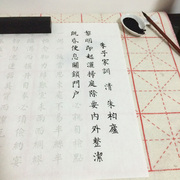 朱子家訓 清 朱柏廬
黎明即起灑掃庭除要內外整潔
既昏便息關鎖門户